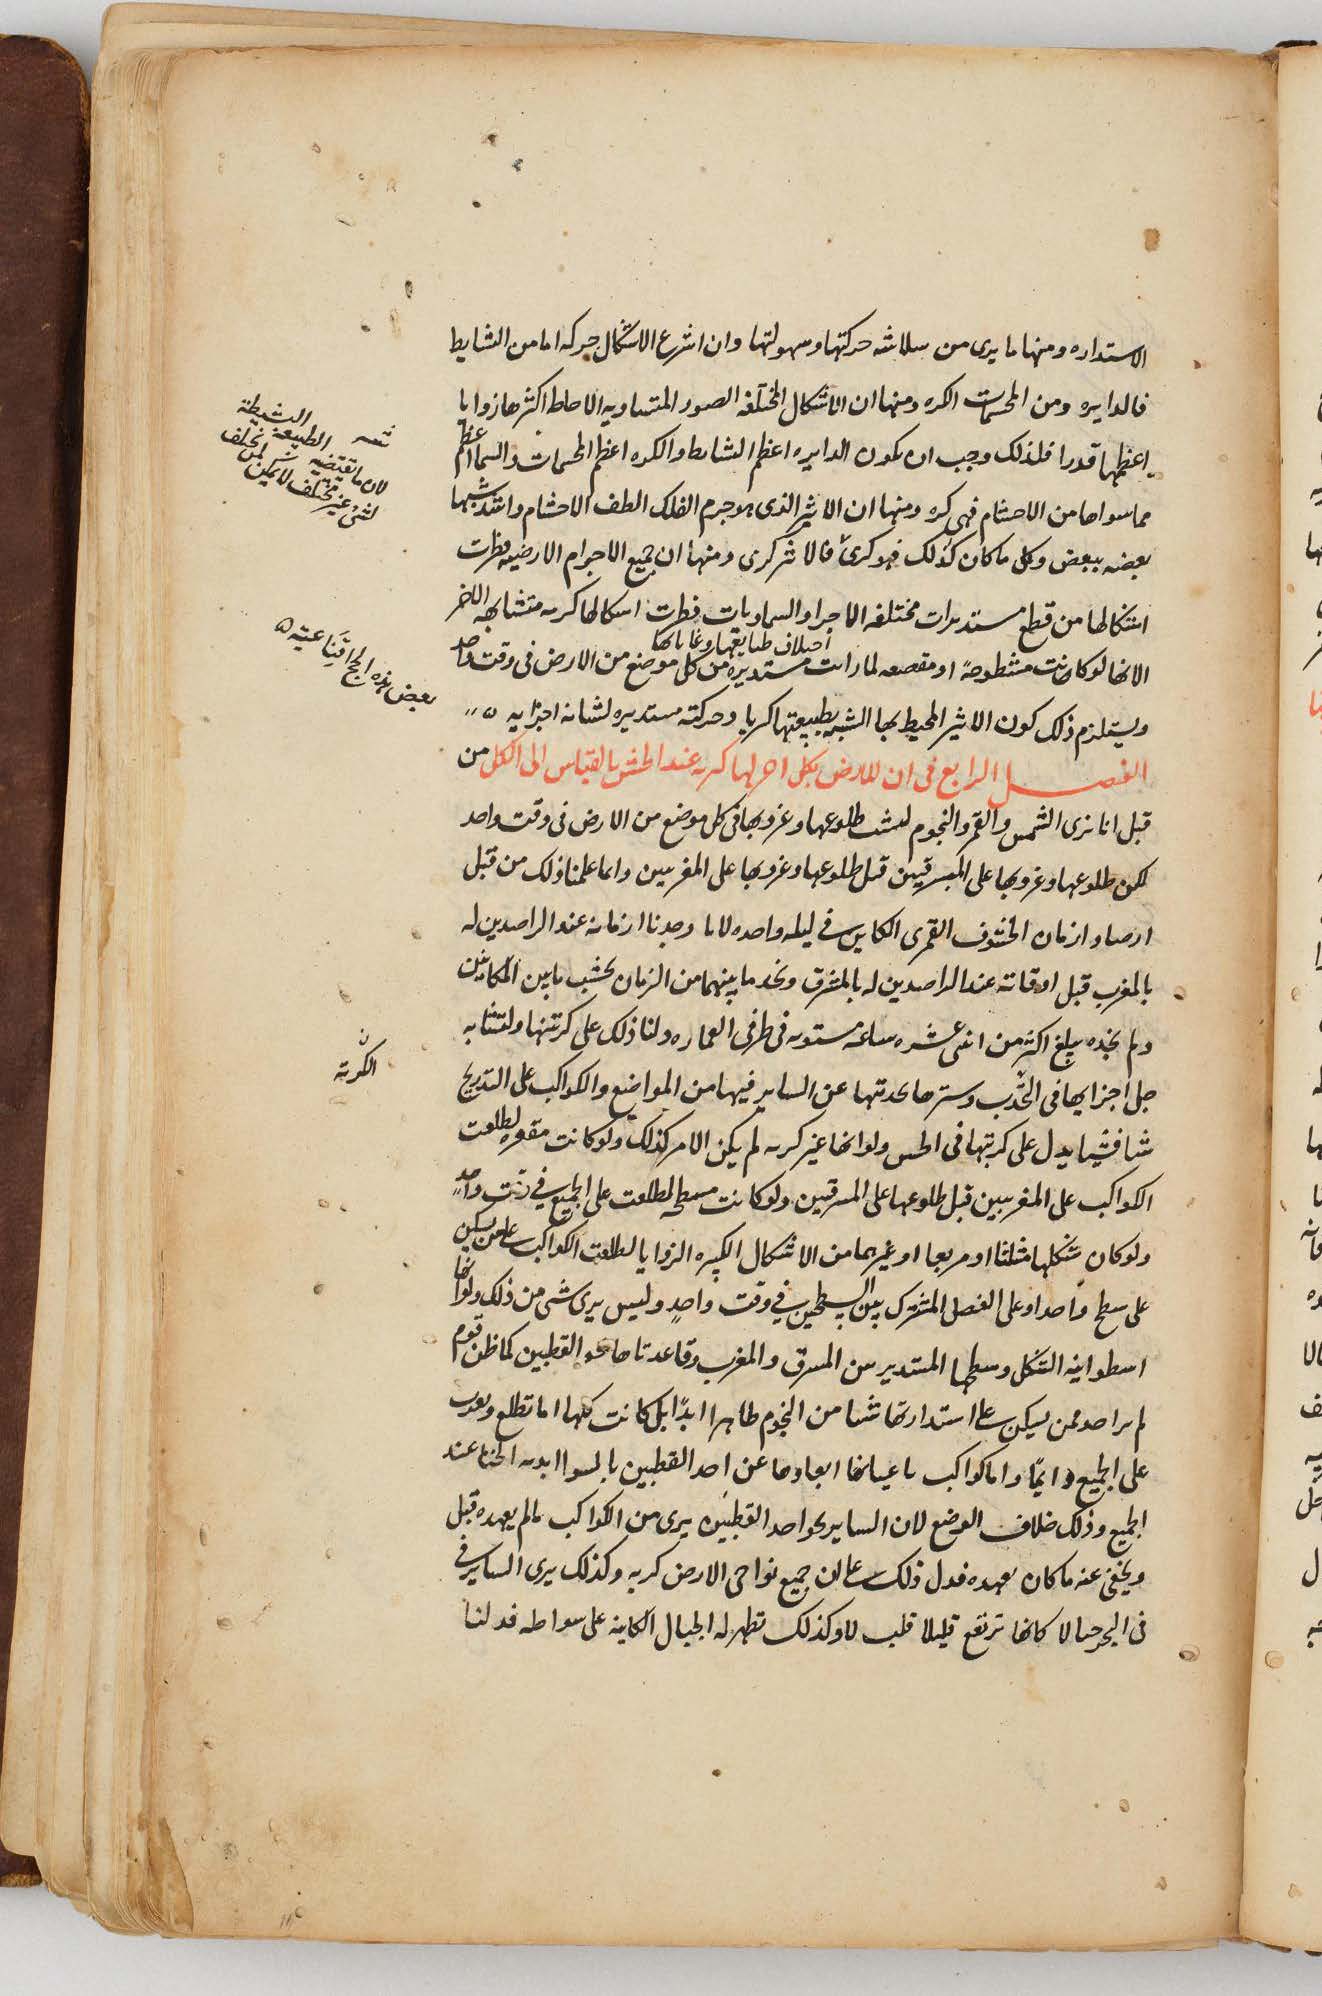 الاستداره ومنها ما يرى من سلاسة حركتها وسهولتها وان اسرع الاشكال حركه اما من البسايط
فالدايره ومن المجسمات الكره ومنها ان الاشكال المختلفه الصور المتساويه الاحاطه اكثرها زوايا
اعظمها قدرا فلذلك وجب ان يكون الدايره اعظم البسايط والكره اعظم المجسمات والسما اعظم
مما سواها من الاجسام فهى كره ومنها ان الاثير الذى هو جرم الفلك الطف الاجسام واشد شبها
بعضه ببعض وكل ما كان كذلك فهو كرىٌ فالاثير كرى ومنها ان جميع الاجرام الارضيه فطرت
اشكالها من قطع مستديرات مختلفه الاجزا والسماويات فطرت اشكالها كريه متشابهه الاجزا
اختلاف طبايعها وغاياتها
لانها لو كانت مسطوحة او مقصعه لما رات مستديره من كل موضع من الارض فى وقت واحد
ويستلزم ذلك كون الاثير المحيط بها الشبه بطبيعتها كريا وحركته مستديره لشابه اجزايه ۵
الفصل الرابع فى ان للارض بكل اجزايها كريه عند الحس بالقياس الى الكل من
قبل انا نرى الشمس والقمر والنجوم ليست طلوعها وغروبها فى كل موضع من الارض فى وقت واحد
لكن طلوعها وغروبها على المشرقيين قبل طلوعها وغروبها على المغربيين وانما علمنا ذلك من قبل
ارصاد ازمان الخسوف القمرى الكاين فى ليله واحده لانا وجدنا ازمانه عند الراصدين له
بالمغرب قبل اوقاته عند الراصدين له بالمشرق ونجد ما بينهما من الزمان بحسب ما بين المكانين
ولم نجده يبلغ اكثر من اثنى عشره ساعه مستويه فى طرفى العماره دلنا ذلك على كريتها ولتشابه
جل اجزايها فى التحدب وسترها بحدبتها عن الساير فيها من المواضع والكواكب على التدريج
شيا فشيا يدل على كريتها فى الحس ولو انها غير كريه لم يكن الامر كذلك ولو كانت مقعره لطلعت
الكواكب على المغربيين قبل طلوعها على المشرقيين ولو كانت مسطحه لطلعت على الجميع فى وقت واحد
ولو كان شكلها مثلثا او مربعا او غيرهما من الاشكال الكثيره الزوايا لطلعت الكواكب على من يسكن
على سطح واحد او على الفصل المشترك بين السطحين فى وقت واحد وليس يرى شى من ذلك ولو انها
اسطوانيه الشكل وسطحها المستدير من المشرق والمغرب وقاعدتاها نحو القطبين كما ظن قوم
لم ير احد ممن يسكن على استدارتها شيا من النجوم ظاهرا ابدًا بل كانت كلها اما تطلع وتغرب
على الجميع دايمًا واما كواكب باعيانها ابعادها عن احد القطبين بالسوا ابديه الخفا عند
الجميع وذلك خلاف الوضع لان الساير نحو احد القطبين يرى من الكواكب ما لم يعهده قبل
ويخفى عنه ما كان يعهده فدل ذلك على ان جميع نواحى الارض كريه وكذلك يرى الساير فى
فى البحر جبالا كانها ترتفع قليلا قليلا وكذلك تظهر له الجبال الكاينه على سواحله فدلنا
البسيطة
لان ما تقتضيه الطبيعة
لشى غير مختلف لا يمكن ان يختلف
بعض هذه الحجج اقناعية ۵
ن
الكرية